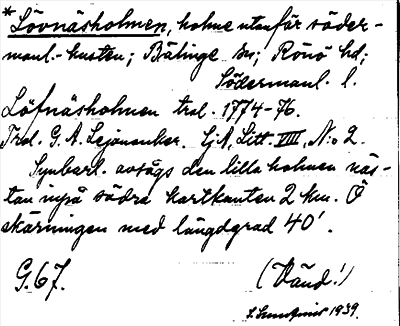 * Lövnäsholmen, holme utanför söder-
manl.-kusten; Bälinge sn; Rönö hd;
Södermanl. l.
Löfnäsholmen trol. 1774-76.
Trol. G. A. Lejonanker. GjA, Litt. VIII, N:o 2.
Synbarl. avsågs den lilla holmen näs-
tan inpå södra kartkanten 2 km. Ö
skärningen med längdgrad 40'.
G. 67.
(Vänd!)
1939.